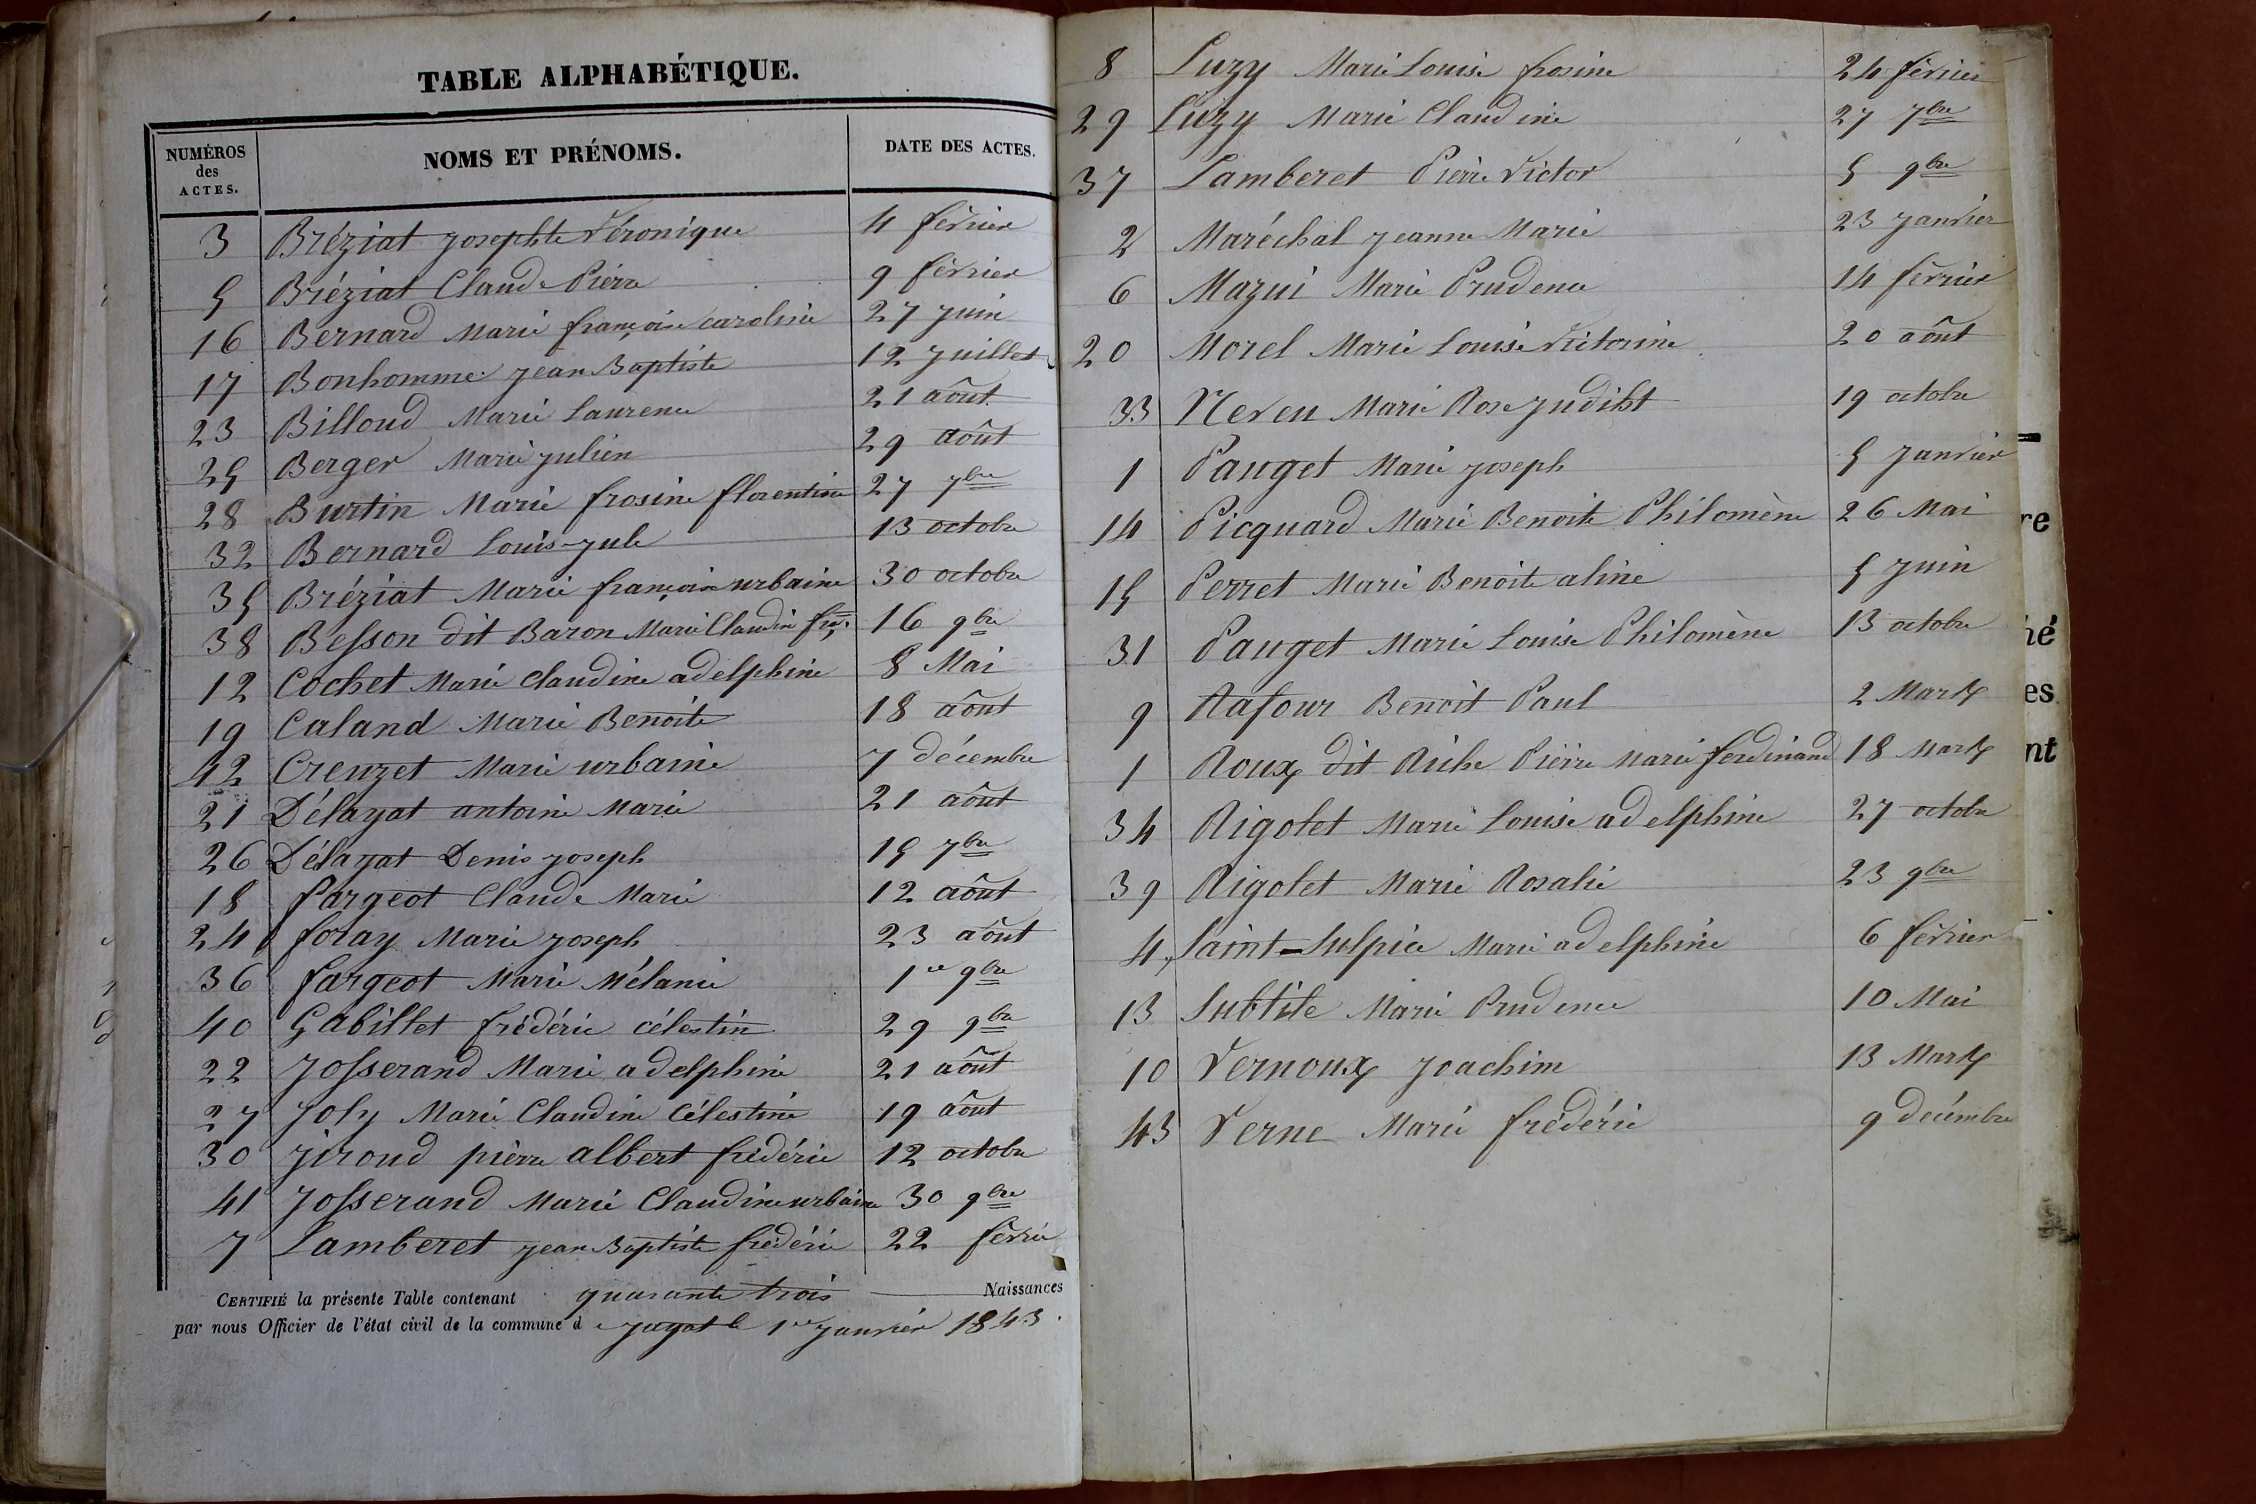 TABLE ALPHABÉTIQUE.
NUMÉROS des ACTES. NOMS ET PRÉNOMS. DATE DES ACTES.
3 Bréziat josephte Véronique 4 février
5 Bréziat Claude Pièrre 9 février
16 Bernard Marie françoise caroline 27 juin
17 Bonhomme jean Baptiste 12 juillet
23 Billoud Marie Laurence 21 aôut
25 Berger Marie julien 29 aôut
28 Burtin Marie frosine florentine 27 7bre
32 Bernard Louis jule 13 octobre
35 Bréziat Marie françoise urbaine 30 octobre
38 Besson dit Baron Marie Claudine fse 16 9bre
12 Cochet Marie claudine adelphine 8 Mai
19 Caland Marie Benoite 18 aôut
42 Creuzet Marie urbaine 7 décembre
21 Délayat antoine Marie 21 aôut
26 Délayat Denis joseph 15 7bre
18 fargeot Claude Marie 12 aôut
24 foray Marie joseph 23 aôut
36 fargeot Marie Mélanie 1er 9bre
40 Gabillet frédéric célestin 29 9bre
22 Josserand Marie adelphine 21 aôut
27 Joly Marie Claudine Célestine 19 aôut
30 jiroud pièrre albert frédéric 12 octobre
41 Josserand Marie Claudine urbaine 30 9bre
7 Lamberet jean Baptiste frédéric 22 févrie
CERTIFIÉ la présente Table contenant quarante trois Naissances
par nous Officier de l'état civil de la commune de jayat le 1er janvier 1843.
8 Luzy Marie Louise frosine 24 février
29 Luzy Marie Claudine 27 7bre
37 Lamberet Pièrre Victor 5 9bre
2 Maréchal jeanne Marie 23 janvier
6 Mazui Marie Prudence 14 février
20 Morel Marie Louise Victorine 20 aôut
33 Neveu Marie Rose judiht 19 octobre
1 Pauget Marie joseph 5 janvier
14 Picquard Marie Benoite Philomène 26 Mai
15 Perret Marie Benoite aline 5 juin
31 Pauget Marie Louise Philomène 13 octobre
9 Rafour Benoit Paul 2 Mars
1 Roux dit Riche Pièrre Marie ferdinand 18 Mars
34 Rigolet Marie Louise adelphine 27 octobre
39 Rigolet Marie Rosalie 23 9bre
4 Saint-Sulpice Marie adelphine 6 février
13 Subtile Marie Prudence 10 Mai
10 Vernoux joachim 13 Mars
43 Verne Marie frédéric 9 décembre
re
hé
es
nt